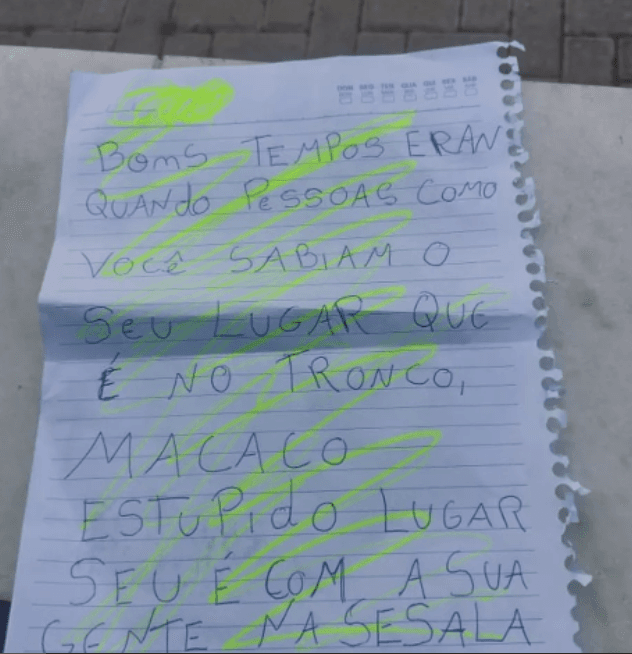 BOmS TEMPOS ERAN
QUANdO PeSSOAS COmO
VOCÊ SABiAM O
SeU LUGAR QUE
É NO TRONCO,
MACACO
ESTUPidO LUGAR
SEU É COM A SUA
GENTE NA SESALA